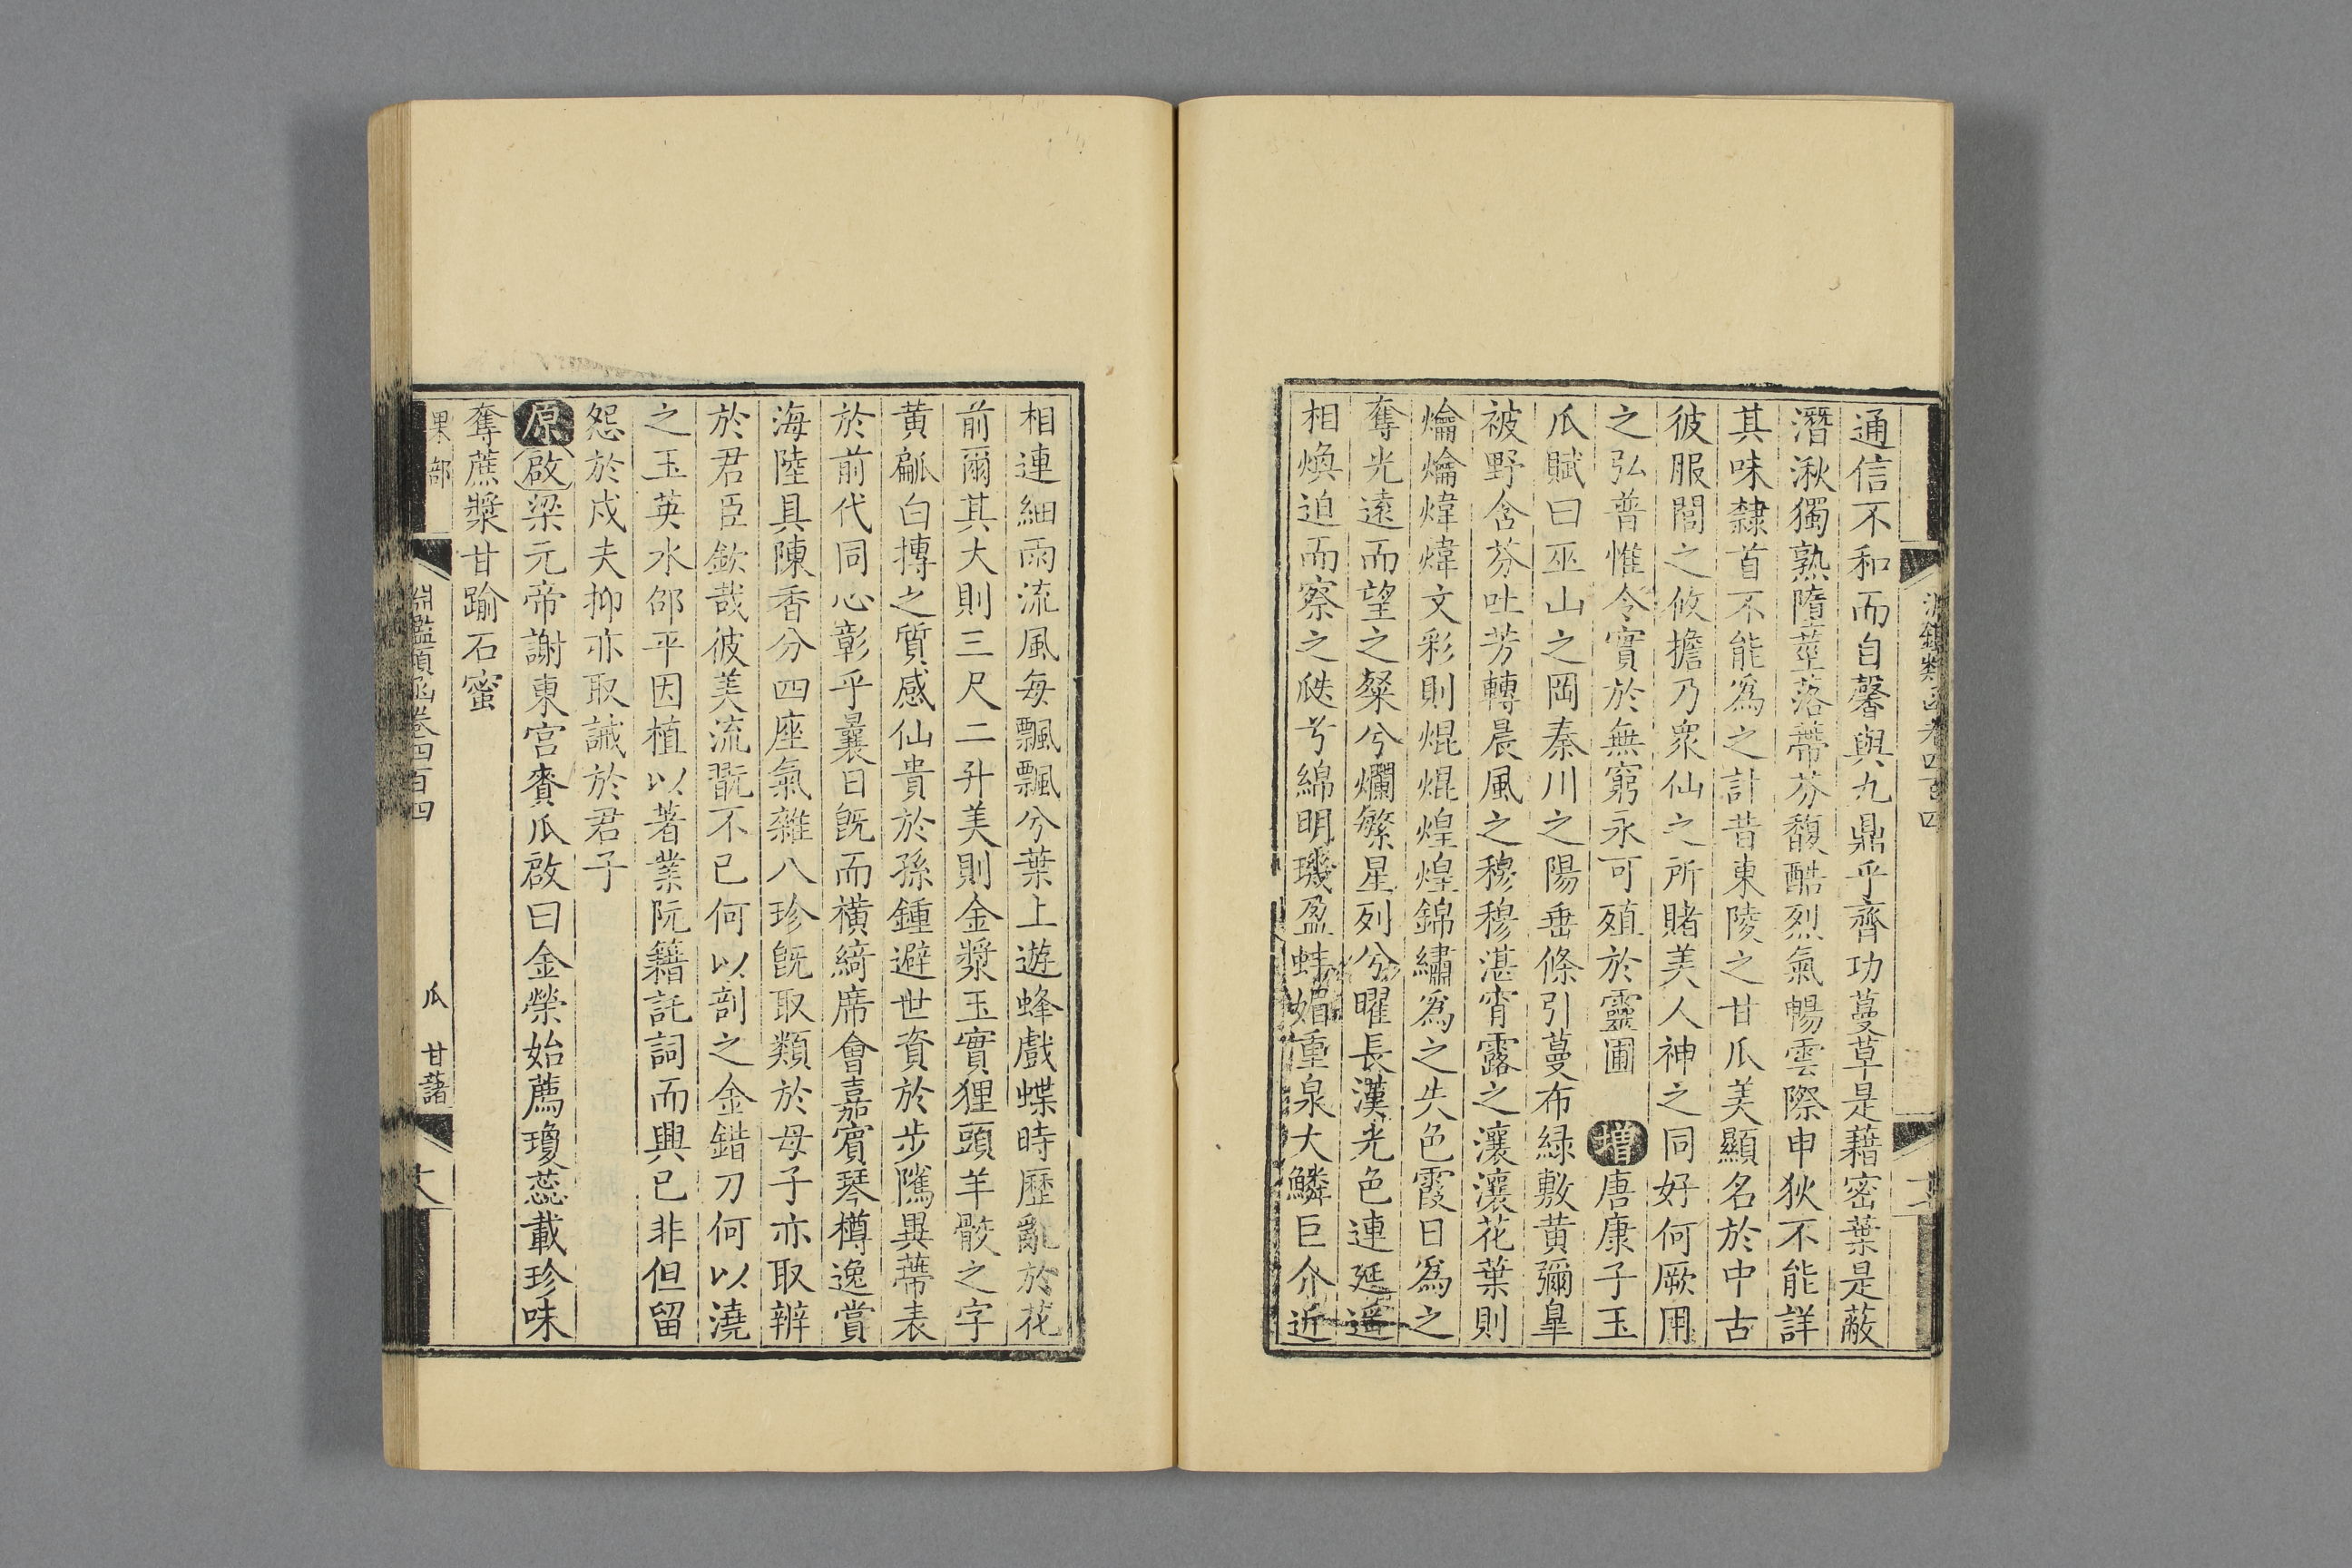 通信不和而自馨與九鼎乎齊功蔓草是藉密葉是蔽
潛湫獨熟隋莖落蔕芬馥酷烈氣暢雲際申狄不能詳
其味隸首不能爲之計昔東陵之甘瓜美顯名於中古
彼服閭之攸擔乃衆仙之所賭美人神之同好何厥用
之弘普惟令實於無窮永可殖於靈圃 增唐康子玉
瓜賦曰巫山之岡秦川之陽垂條引蔓布緑敷黄彌臯
被野含芬吐芳轉晨風之穆穆湛宵露之瀼瀼花葉則
爚爚煒煒文彩則焜焜煌煌錦繡爲之失色霞日爲之
奪光遠而望之粲兮爛繁星列兮曜長漢光色連延遥
相煥迫而察之瓞兮綿明璣盈蚌媚重泉大鱗巨介近
相連細雨流風每飄飄兮葉上遊蜂戲蝶時歷亂於花
前爾其大則三尺二升美則金漿玉實狸頭羊骹之字
黄㼐白摶之質感仙貴於孫鍾避世資於步隲異蔕表
於前代同心彰乎曩日旣而横綺席會嘉賓琴樽逸賞
海陸具陳香分四座氣雜八珍旣取類於母子亦取辨
於君臣欽哉彼美流翫不已何以剖之金錯刀何以澆
之玉英水邵平因植以著業阮籍託詞而興已非但留
怨於戍夫抑亦取誡於君子
原啟梁元帝謝東宫賚瓜啟曰金榮始薦瓊蕊載珍味
奪蔗漿甘踰石蜜
果部
淵鑑類函卷四百四
瓜 甘藷